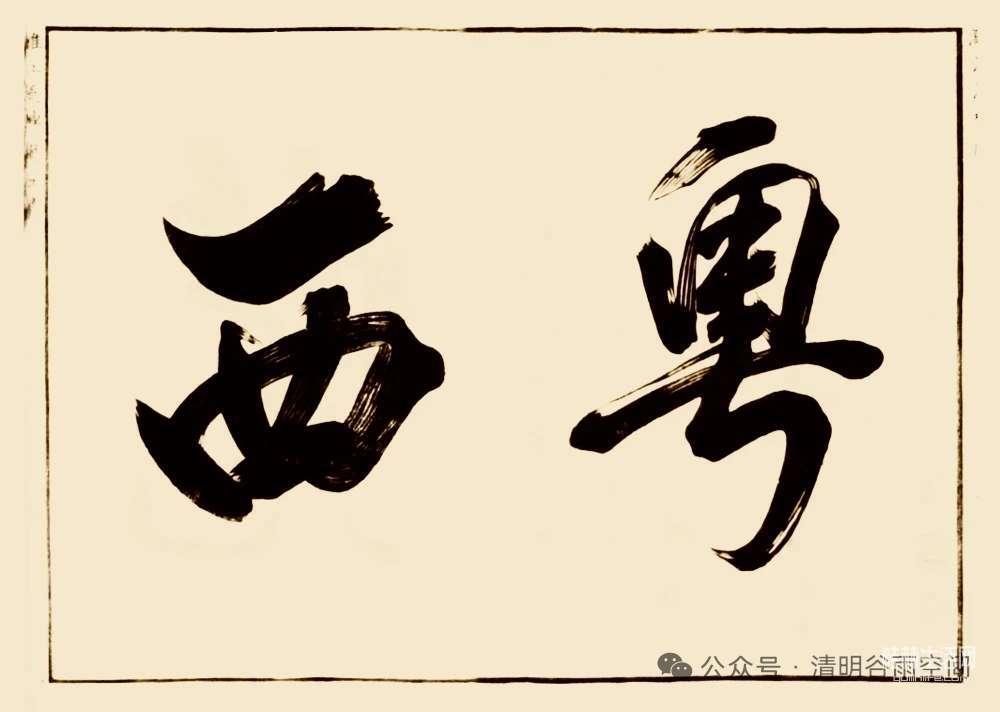 粤西
公众号 · 清明谷雨空间